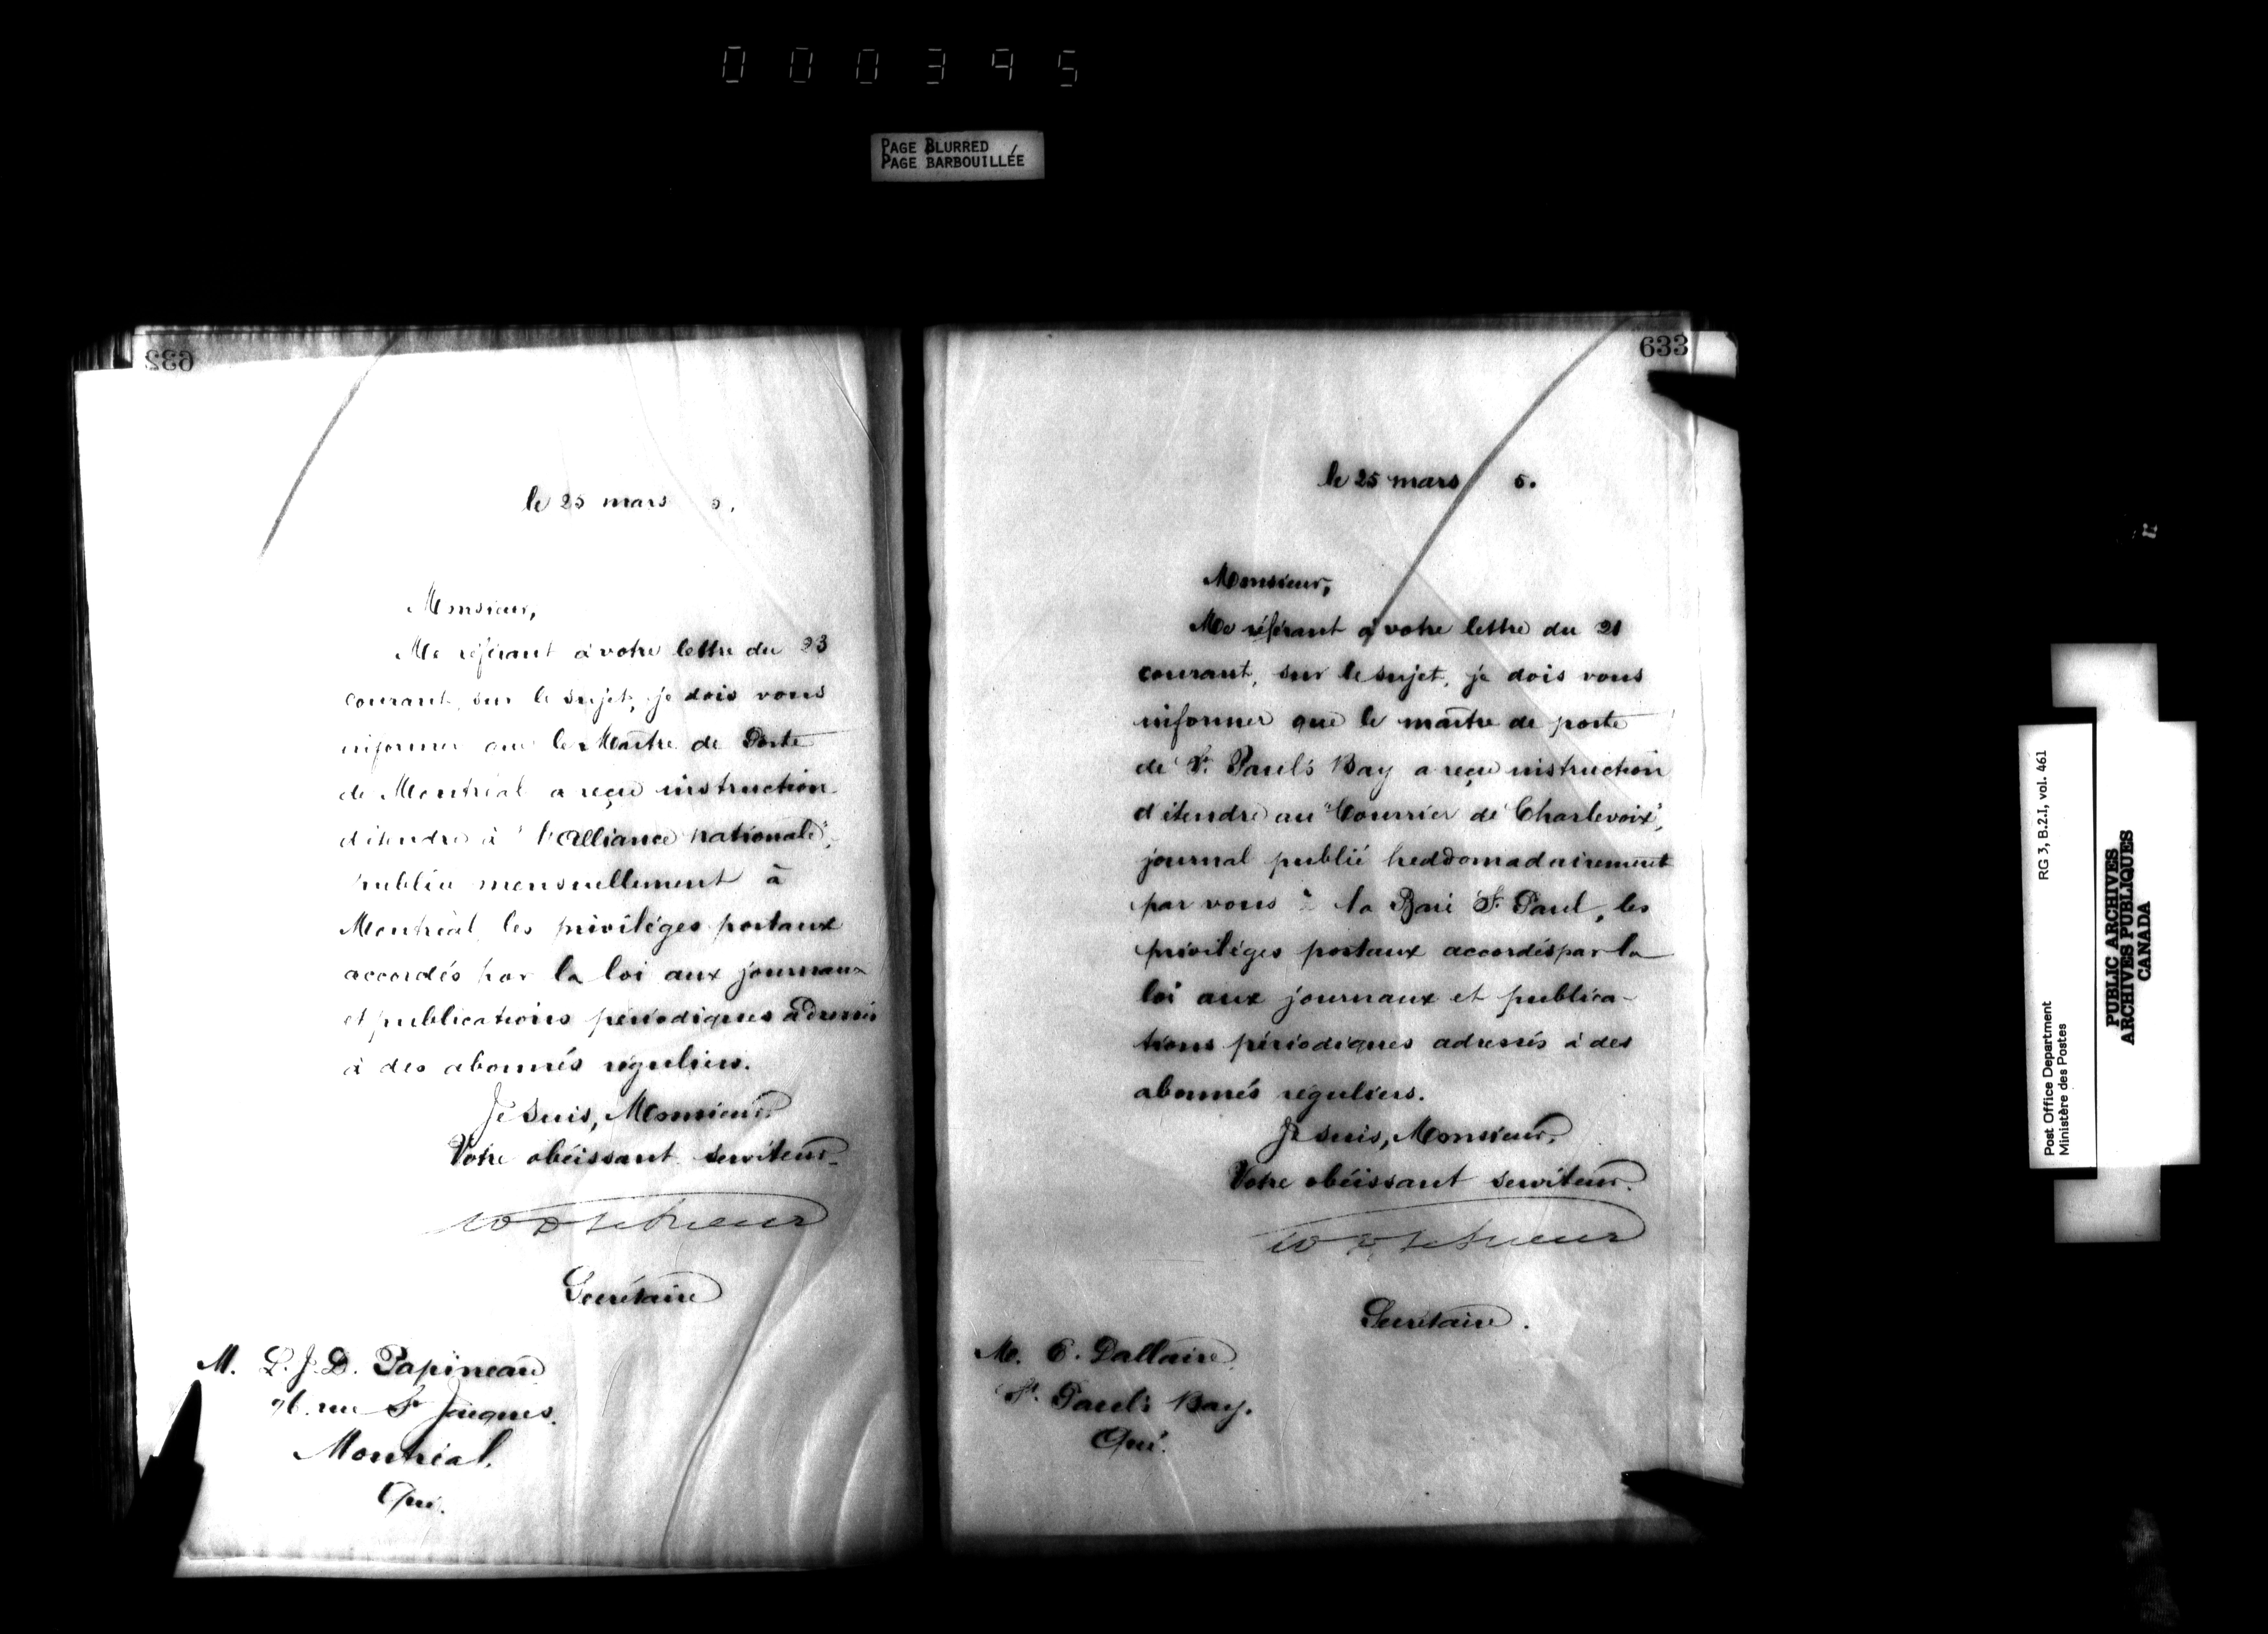 000395
PAGE BLURRED
PAGE BARBOUILLÉE
632
le 25 mars 5.
Monsieur,
Me référant à votre lettre du 23
courant, sur le sujet, je dois vous
informer que le Maître de Poste
de Montréal a reçu instruction
d'étendre à "l'Alliance nationale",
publiée mensuellement à
Montréal, les privilèges postaux
accordés par la loi aux journaux
et publications périodiques adressés
à des abonnés réguliers.
Je suis, Monsieur,
Votre obéissant serviteur.
Secrétaire
M. L. J. D. Papineau
96. rue St Jacques.
Montréal.
Qué.
633
le 25 mars 5.
Monsieur,
Me référant à votre lettre du 21
courant, sur le sujet, je dois vous
informer que le maître de poste
de St. Paul's Bay a reçu instruction
d'étendre au "Courrier de Charlevoix",
journal publié heddomadairement
par vous à la Baie St. Paul, les
privilèges postaux accordés par la
loi aux journaux et publica-
tions périodiques adressés à des
abonnés réguliers.
Je suis, Monsieur,
Votre obéissant serviteur.
Secrétaire.
M. E. Dallaire.
St. Paul's Bay.
Qué.
Post Office Department
Ministère des Postes
RG 3, B.2.I, vol. 461
PUBLIC ARCHIVES
ARCHIVES PUBLIQUES
CANADA